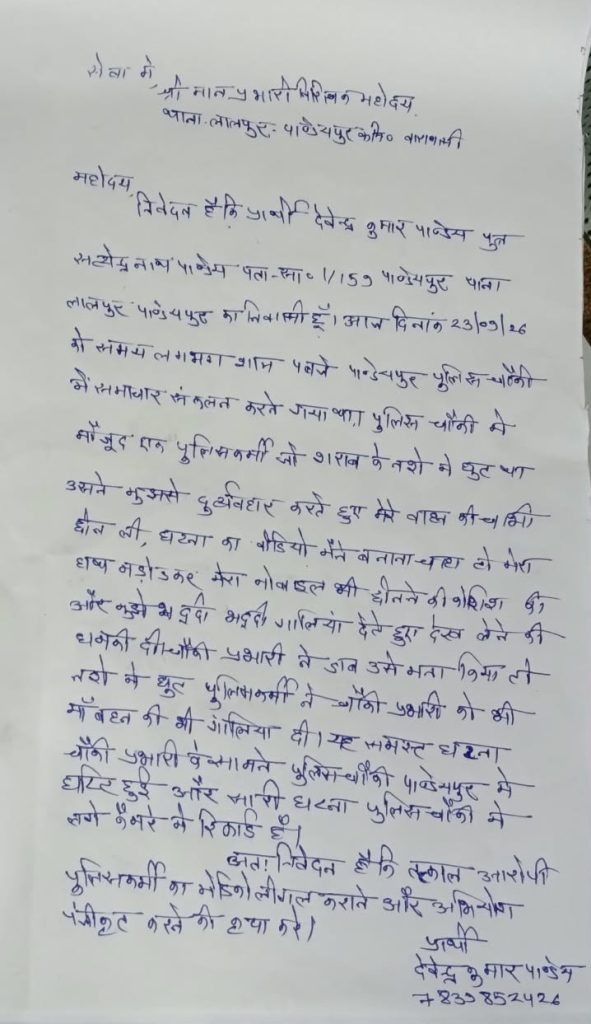 सेवा में,
श्री मान प्रभारी निरीक्षक महोदय,
थाना-लालपुर- पाण्डेयपुर कमि० वाराणसी
महोदय,
निवेदन है कि प्रार्थी देवेन्द्र कुमार पाण्डेय पुत्र
सत्येन्द्र नाथ पाण्डेय पता-सा० 1/159 पाण्डेयपुर थाना
लालपुर पाण्डेयपुर का निवासी हूँ। आज दिनांक
को समय लगभग शाम पाण्डेयपुर पुलिस चौकी
में समाचार संकलन करने गया था, पुलिस चौकी में
मौजूद एक पुलिसकर्मी जो शराब के नशे में धुट था
उसने मुझसे दुर्व्यवहार करते हुए मेरे वाहन की चाभी
छीन ली, घटना का वीडियो मैंने बनाना चाहा तो मेरा
हाथ मड़ोडकर मेरा मोबाइल भी छीनने की कोशिश की
और मुझे भद्दी भद्दी गालियां देते हुए देख लेने की
धमकी दी। चौकी प्रभारी ने जब उसे मना किया तो
नशे में धुट पुलिसकर्मी ने चौकी प्रभारी को भी
माँ बहन की भी गालिया दी। यह समस्त घटना
चौकी प्रभारी के सामने पुलिस चौकी पाण्डेयपुर में
घटित हुई और सारी घटना पुलिस चौकी में
लगे कैमरे में रिकार्ड है।
अतः निवेदन है कि तत्काल आरोपी
पुलिसकर्मी का मेडिको लीगल कराने और अभियोग
पंजीकृत करने की कृपा करें।
प्रार्थी
देवेन्द्र कुमार पाण्डेय
7839852426